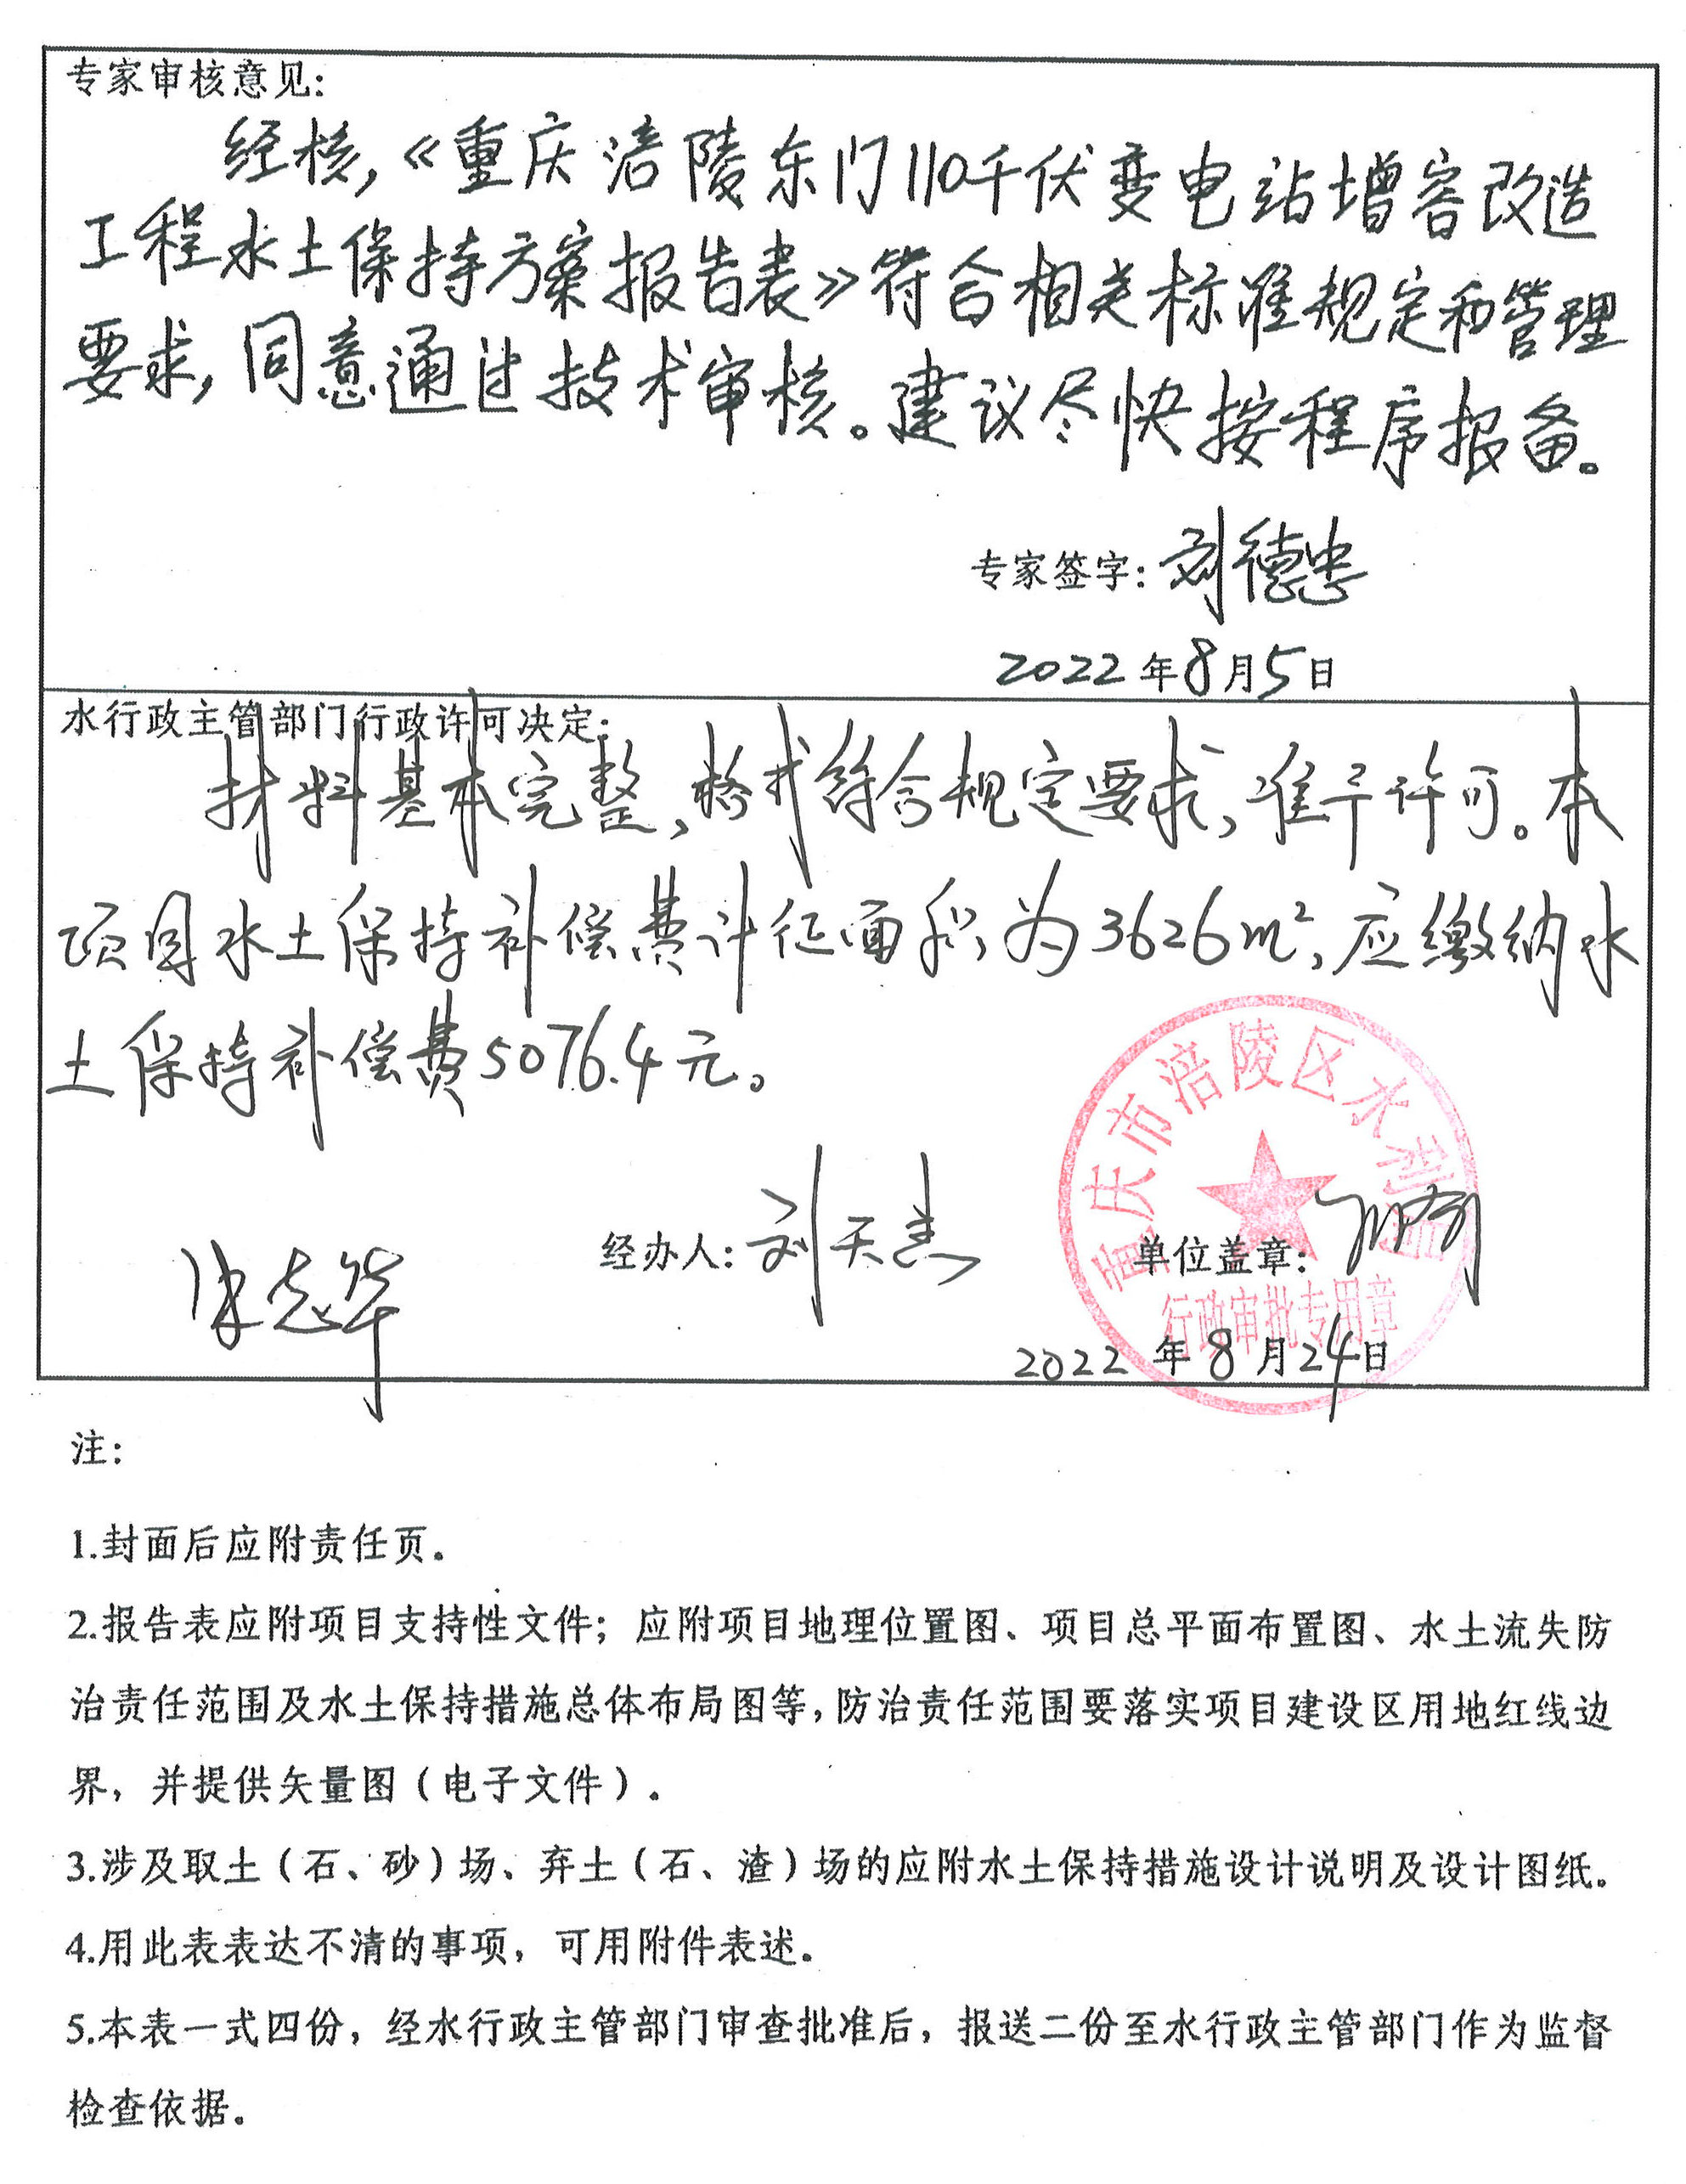 专家审核意见:
经核,《重庆涪陵东门110千伏变电站增容改造
工程水土保持方案报告表》符合相关标准规定和管理
要求,同意通过技术审核。建议尽快按程序报备。
专家签字: 刘德忠
2022年8月5日
水行政主管部门行政许可决定:
材料基本完整,格式符合规定要求,准予许可。本
项目水土保持补偿费计征面积为3626m²,应缴纳水
土保持补偿费5076.4元。
重庆市涪陵区水利局
经办人: 刘天杰
单位盖章:
行政审批专用章
2022年8月24日
注:
1.封面后应附责任页。
2.报告表应附项目支持性文件；应附项目地理位置图、项目总平面布置图、水土流失防
治责任范围及水土保持措施总体布局图等,防治责任范围要落实项目建设区用地红线边
界，并提供矢量图（电子文件）。
3.涉及取土（石、砂）场、弃土（石、渣）场的应附水土保持措施设计说明及设计图纸。
4.用此表表达不清的事项，可用附件表述。
5.本表一式四份，经水行政主管部门审查批准后，报送二份至水行政主管部门作为监督
检查依据。